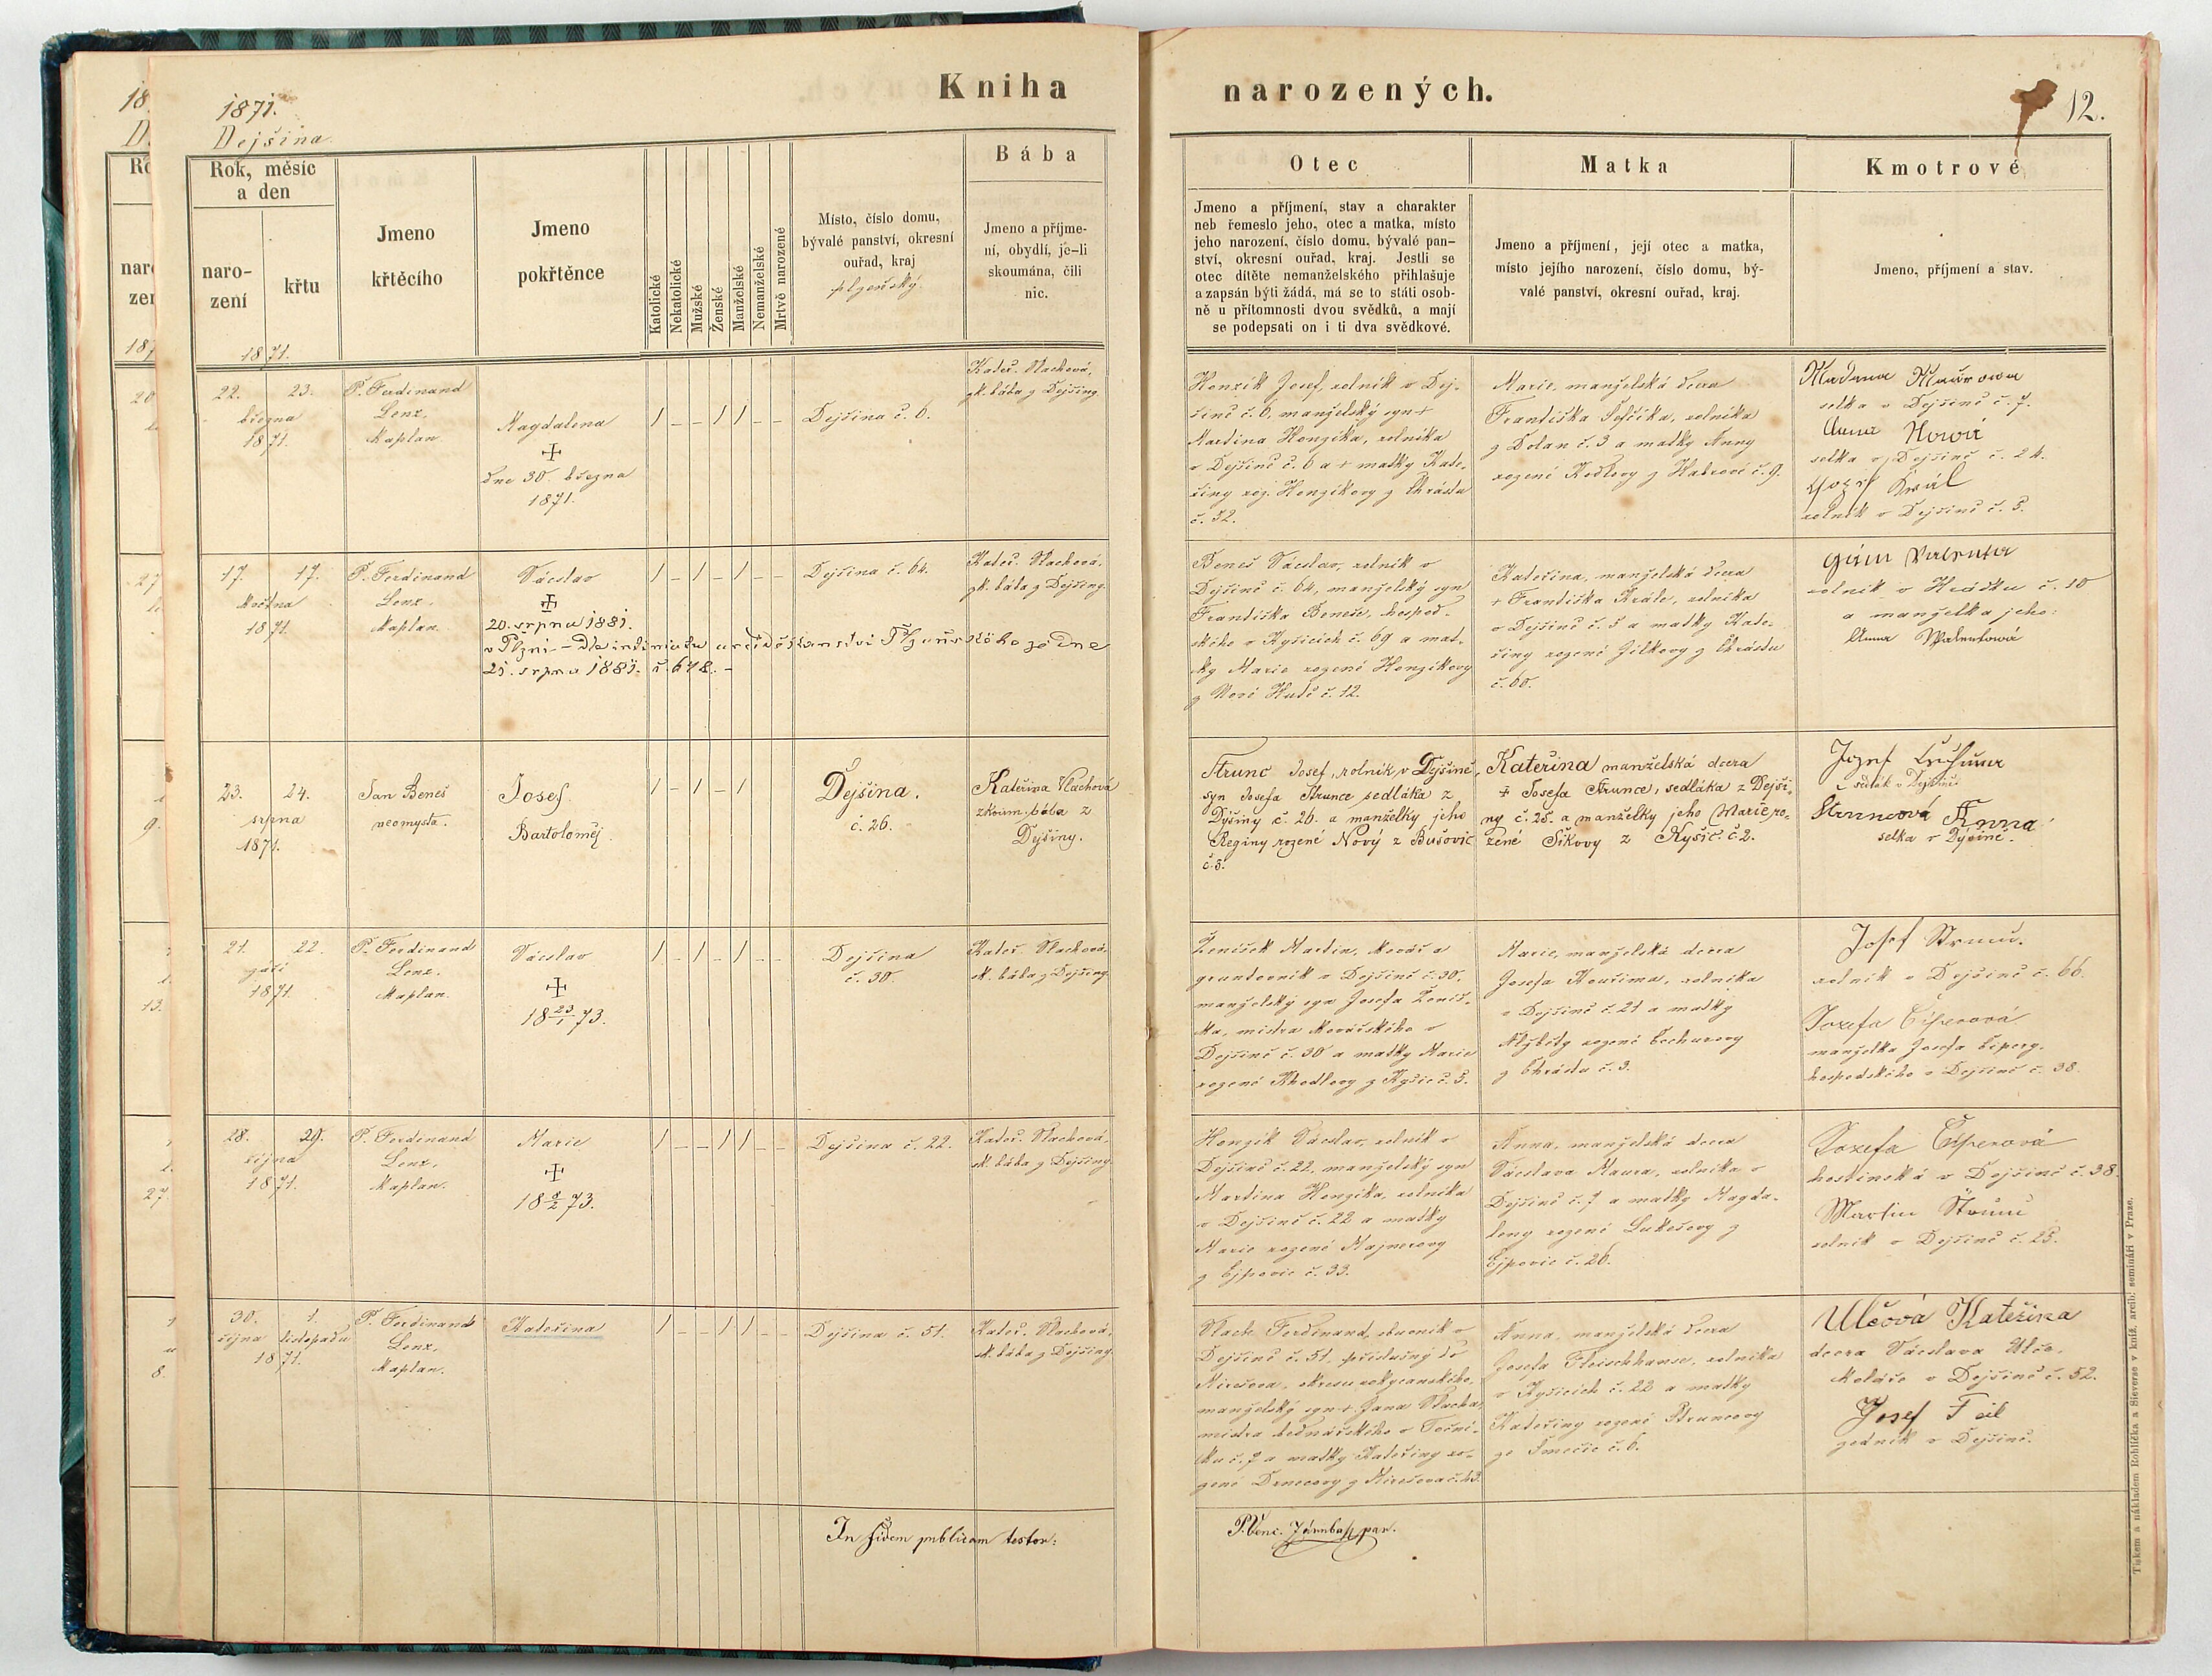 18
1871.
Kniha
narozených.
12.
D.
Dejšina.
Rok, měsíc
a den
naro-
zení
křtu
1871.
Jmeno
křtěcího
Jmeno
pokřtěnce
Katolické
Nekatolické
Mužské
Ženské
Manželské
Nemanželské
Mrtvě narozené
Místo, číslo domu,
bývalé panství, okresní
ouřad, kraj
plzeňský.
Bába
Jmeno a příjme-
ní, obydlí, je-li
skoumána, čili
nic.
Otec
Jmeno a příjmení, stav a charakter
neb řemeslo jeho, otec a matka, místo
jeho narození, číslo domu, bývalé pan-
ství, okresní ouřad, kraj. Jestli se
otec dítěte nemanželského přihlašuje
a zapsán býti žádá, má se to státi osob-
ně u přítomnosti dvou svědků, a mají
se podepsati on i ti dva svědkové.
Matka
Jmeno a příjmení, její otec a matka,
místo jejího narození, číslo domu, bý-
valé panství, okresní ouřad, kraj.
Kmotrové
Jmeno, příjmení a stav.
22. 23.
března
1871.
P. Ferdinand
Lenz,
kaplan
Magdalena
dne 30. března
1871.
Dejšina č. 6.
Kateř. Vlachová,
zk. bába z Dejšiny.
Honzík Josef, rolník v Dej-
šině č. 6, manželský syn +
Martina Honzíka, rolníka
v Dejšině č. 6 a + matky Kate-
řiny roz. Honzíkovy z Chrástu
č. 32.
Marie, manželská dcera
Františka Šefčíka, rolníka
z Dolan č. 3 a matky Anny
rozené
č. 9.
selka v Dejšině č. 7.
Anna Nová
selka v Dejšině č. 24.
Král
rolník v Dejšině č. 5.
17. 17.
května
1871.
P. Ferdinand
Lenz,
kaplan.
Václav
20. srpna 1881.
v Plzni
25. srpna 1881. č. 648. –
Dejšina č. 64.
Kateř. Vlachová,
zk. bába z Dejšiny.
Beneš Václav, rolník v
Dejšině č. 64, manželský syn
Františka Beneše, hospod-
ského v Kyšicích č. 69 a mat-
ky Marie rozené Honzíkovy
z Nové Hutě č. 12.
Kateřina, manželská dcera
+ Františka Krále, rolníka
v Dejšině č. 5 a matky Kate-
řiny rozené Jílkovy z Chrástu
č. 60.
Valenta
rolník v Hrádku č. 10
a manželka jeho:
Anna Walentowá
23. 24.
srpna
1871.
Jan Beneš
neomysta.
Josef
Bartoloměj.
Dejšina.
č. 26.
Kateřina Vlachová
zkoum. bába z
Dýšiny.
Strunc Josef, rolník v Dejšině,
syn Josefa Strunce sedláka z
Dýšiny č. 26. a manželky jeho
Reginy rozené Nový z Bušovic
č. 5.
Kateřina manželská dcera
+ Josefa Strunce, sedláka z Dejši-
ny č. 25. a manželky jeho Marie ro-
zené Šikovy z Kyšic č. 2.
Jozef
sedlák v Dejšině
Struncová Anna
selka v Dýšině.
21. 22.
září
1871.
P. Ferdinand
Lenz.
kaplan.
Václav
18 23/1 73.
Dejšina
č. 30.
Kateř. Vlachová,
zk. bába z Dejšiny.
Ženíšek Martin, kovář a
gruntovník v Dejšině č. 30.
manželský syn Josefa Ženíš-
ka, mistra kovářského v
Dejšině č. 30 a matky Marie
rozené Khodlovy z Kyšic č. 5.
Marie, manželská dcera
Josefa Kouřima, rolníka
v Dejšině č. 21 a matky
Alžběty rozené Cechurovy
z Chrástu č. 3.
Josef Strunc.
rolník v Dejšině č. 66.
Jozefa Ciperová
manželka Josefa Cipery,
hospodského v Dejšině č. 38.
28. 29.
října
1871.
P. Ferdinand
Lenz,
kaplan.
Marie
18 8/2 73.
Dejšina č. 22.
Kateř. Vlachová,
zk. bába z Dejšiny.
Honzík Václav, rolník v
Dejšině č. 22, manželský syn
Martina Honzíka, rolníka
v Dejšině č. 22 a matky
Marie rozené Majnerovy
z Ejpovic č. 33.
Anna, manželská dcera
Václava Maura, rolníka v
Dejšině č. 7 a matky Magda-
leny rozené Lukešovy z
Ejpovic č. 26.
Jozefa Ciperová
hostinská v Dejšině č. 38.
Martin Strunc
rolník v Dejšině č. 25.
30. 1.
října listopadu
1871.
P. Ferdinand
Lenz,
kaplan.
Kateřina
Dejšina č. 51.
Kateř. Vlachová,
zk. bába z Dejšiny.
Vlach Ferdinand, v
Dejšině č. 51, příslušný do
Mirešova, okresu rokycanského,
manželský syn + Jana Vlacha,
mistra bednářského v Toční-
ku č. 7 a matky Kateřiny ro-
zené z Mirešova č. 43.
Anna, manželská dcera
Josefa Fleischhanse, rolníka
v Kyšicích č. 22 a matky
Kateřiny rozené Struncovy
ze Směčic č. 6.
Ulčová Kateřina
dcera Václava Ulče,
koláře v Dejšině č. 52.
Josef
zedník v Dejšině.
In fidem publicam testor:
P. Venc. par.
Tiskem a nákladem Rohlíčka a Sieverse v kníž. arcib. semináři v Praze.